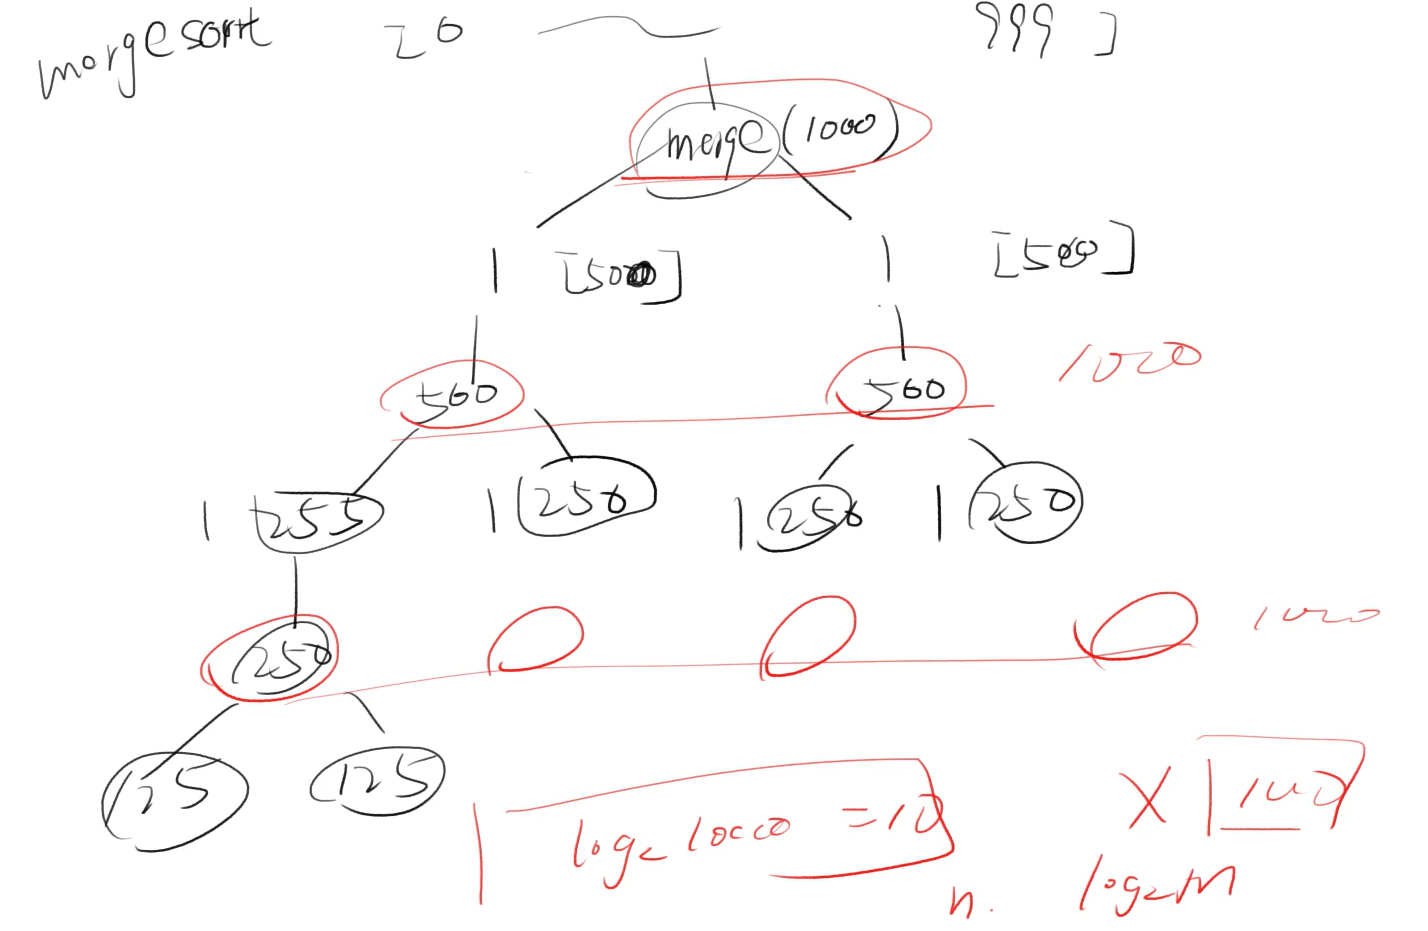 morgesort [0 999]
merge(1000)
| [500] | [500]
500 500 1000
| 255 | 250 | 250 | 250
250 1000
125 125
| log2 1000 = 10 X | 1000
n. log2n